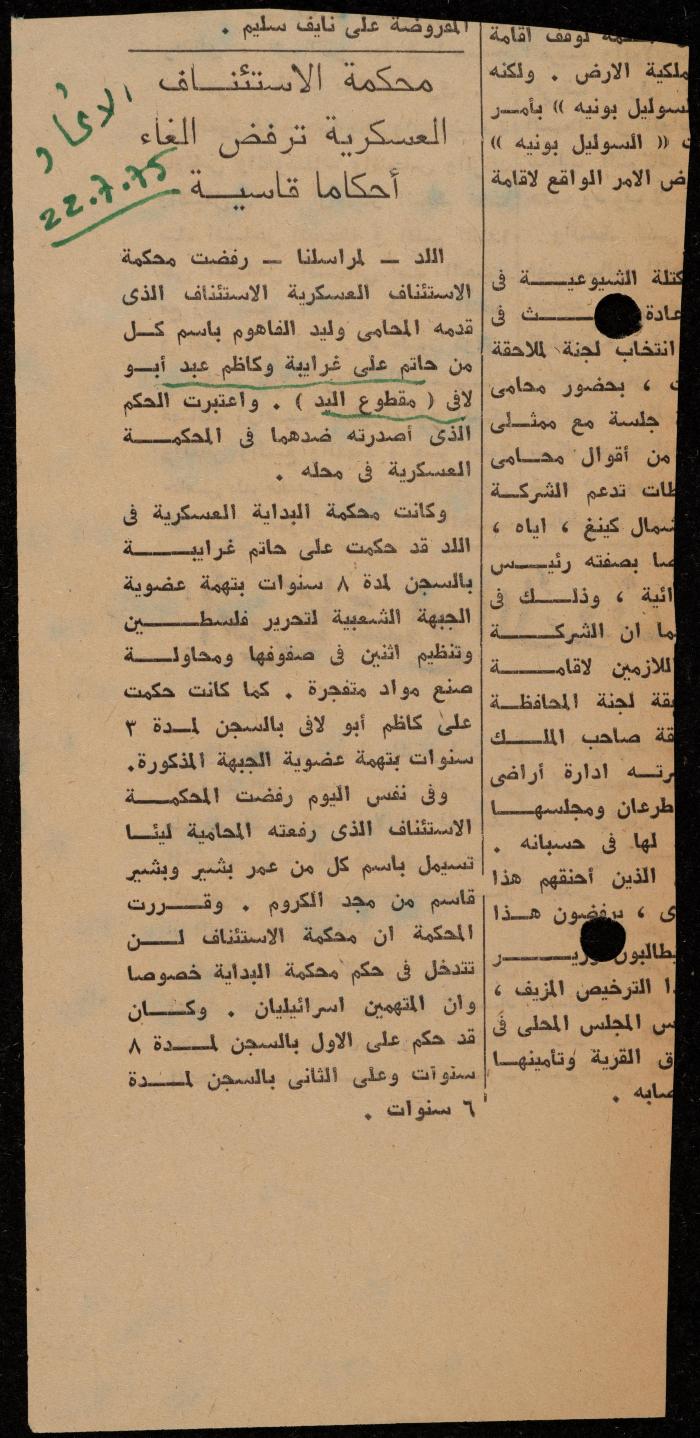 المفروضة على نايف سليم .
محكمة الاستئنـــاف
العسكرية ترفض الغاء
أحكاما قاسيـــة
22.7.75
اللد ــ لمراسلنا ــ رفضت محكمة
الاستئناف العسكرية الاستئناف الذى
قدمه المحامى وليد الفاهوم باسم كــل
من حاتم على غرايبة وكاظم عبد أبــو
لافى ( مقطوع اليد ) . واعتبرت الحكم
الذى أصدرته ضدهما فى المحكمــــة
العسكرية فى محله .
وكانت محكمة البداية العسكرية فى
اللد قد حكمت على حاتم غرايبــــة
بالسجن لمدة ٨ سنوات بتهمة عضوية
الجبهة الشعبية لتحرير فلسطـــــين
وتنظيم اثنين فى صفوفها ومحاولـــة
صنع مواد متفجرة . كما كانت حكمت
على كاظم أبو لافى بالسجن لمــدة ٣
سنوات بتهمة عضوية الجبهة المذكورة.
وفى نفس اليوم رفضت المحكمــــة
الاستئناف الذى رفعته المحامية ليئــا
تسيمل باسم كل من عمر بشير وبشير
قاسم من مجد الكروم . وقـــررت
المحكمة ان محكمة الاستئناف لـــن
تتدخل فى حكم محكمة البداية خصوصا
وان المتهمين اسرائيليان . وكـــان
قد حكم على الاول بالسجن لمــــدة ٨
سنوات وعلى الثانى بالسجن لمــــدة
٦ سنوات .
لوقف اقامة
ملكية الارض . ولكنه
لسوليل بونيه )) بأمــر
(( السوليل بونيه ))
الامر الواقع لاقامة
كتلة الشيوعيـــــة فى
فى
انتخاب لجنة لملاحقة
، بحضور محامى
جلسة مع ممثــلى
من أقوال محــامى
تدعم الشركـــة
شمال كينغ ، اياه ،
بصفته رئيــــس
، وذلــــك فى
ان الشركـــــة
اللازمين لاقامــــة
لجنة المحافظــة
صاحب الملــــك
ادارة أراضى
طرعان ومجلسهــا
لها فى حسبانه .
الذين أحنقهم هذا
، يرفضون هــذا
الترخيص المزيف ،
المجلس المحلى فى
القرية وتأمينهــا